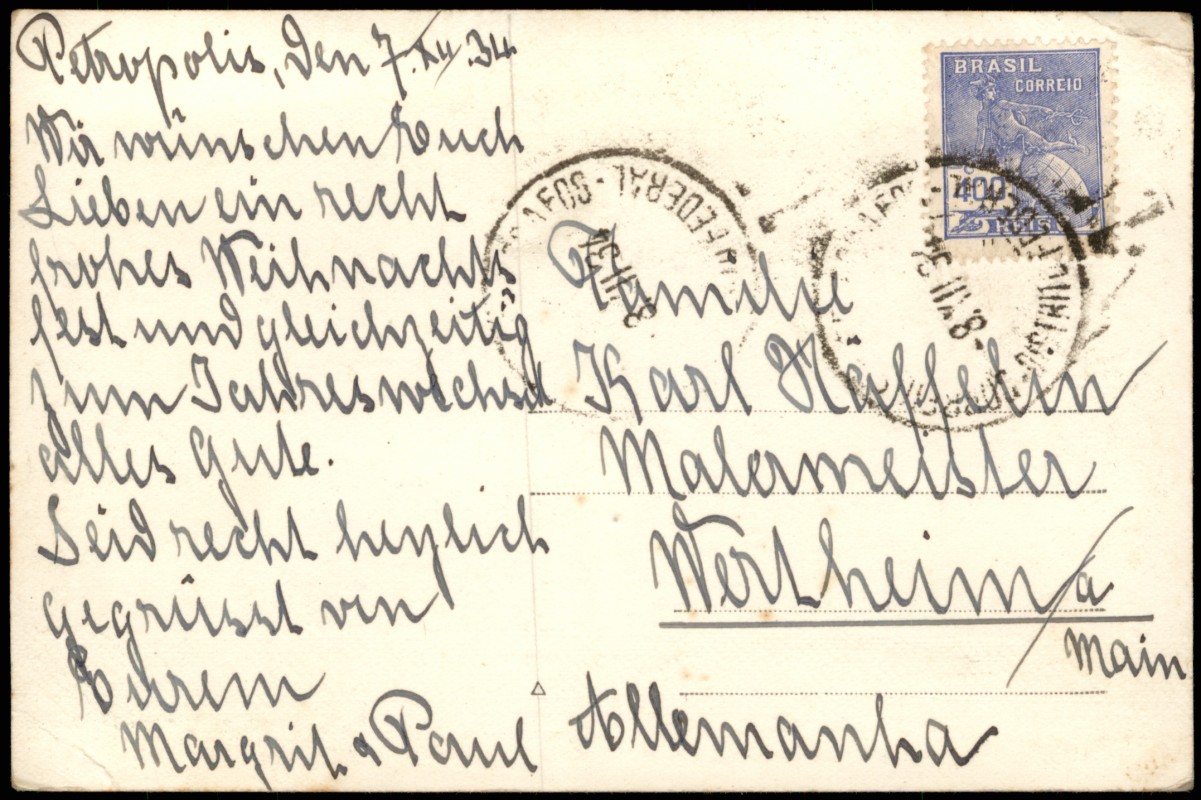 Petropolis, den 7.XII.34.
Wir wünschen Euch
Lieben ein recht
frohes Weihnachts
fest und gleichzeitig
zum Jahreswechsel
alles Gute.
Seid recht herzlich
gegrüsst von
Eurem
Margrit & Paul
BRASIL
CORREIO
400
REIS
FEDERAL
8.XII.34
Familie
Karl Häffelin
Malermeister
Wertheim/a
Main
Allemanha